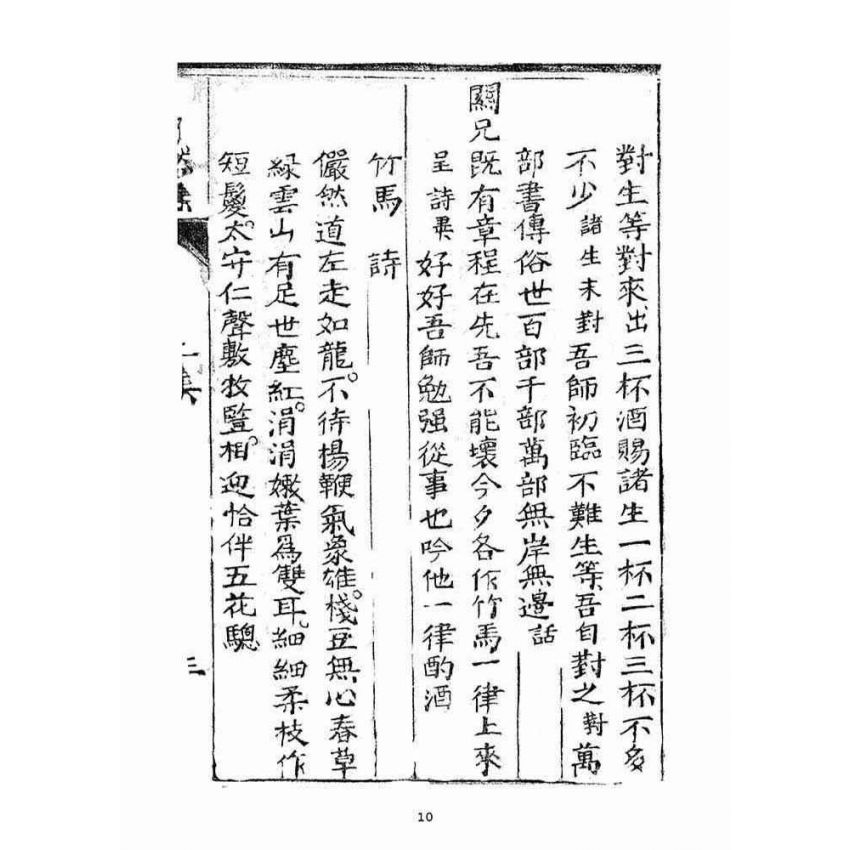 對生等對來出三杯酒賜諸生一杯二杯三杯不多
不少諸生未對吾師初臨不難生等吾自對之對萬
部書傳俗世百部千部萬部無岸無邊話
關兄既有章程在先吾不能壞今夕各作竹馬一律上來
呈詩畢好好吾師勉强從事也吟他一律酌酒
竹馬詩
儼然道左走如龍。不待楊鞭氣象雄。棧豆無心春草
綠雲山有足世塵紅。涓涓嫩葉爲雙耳。細細柔枝作
短鬉。太守仁聲敷牧監。相迎恰伴五花驄
集
三
10